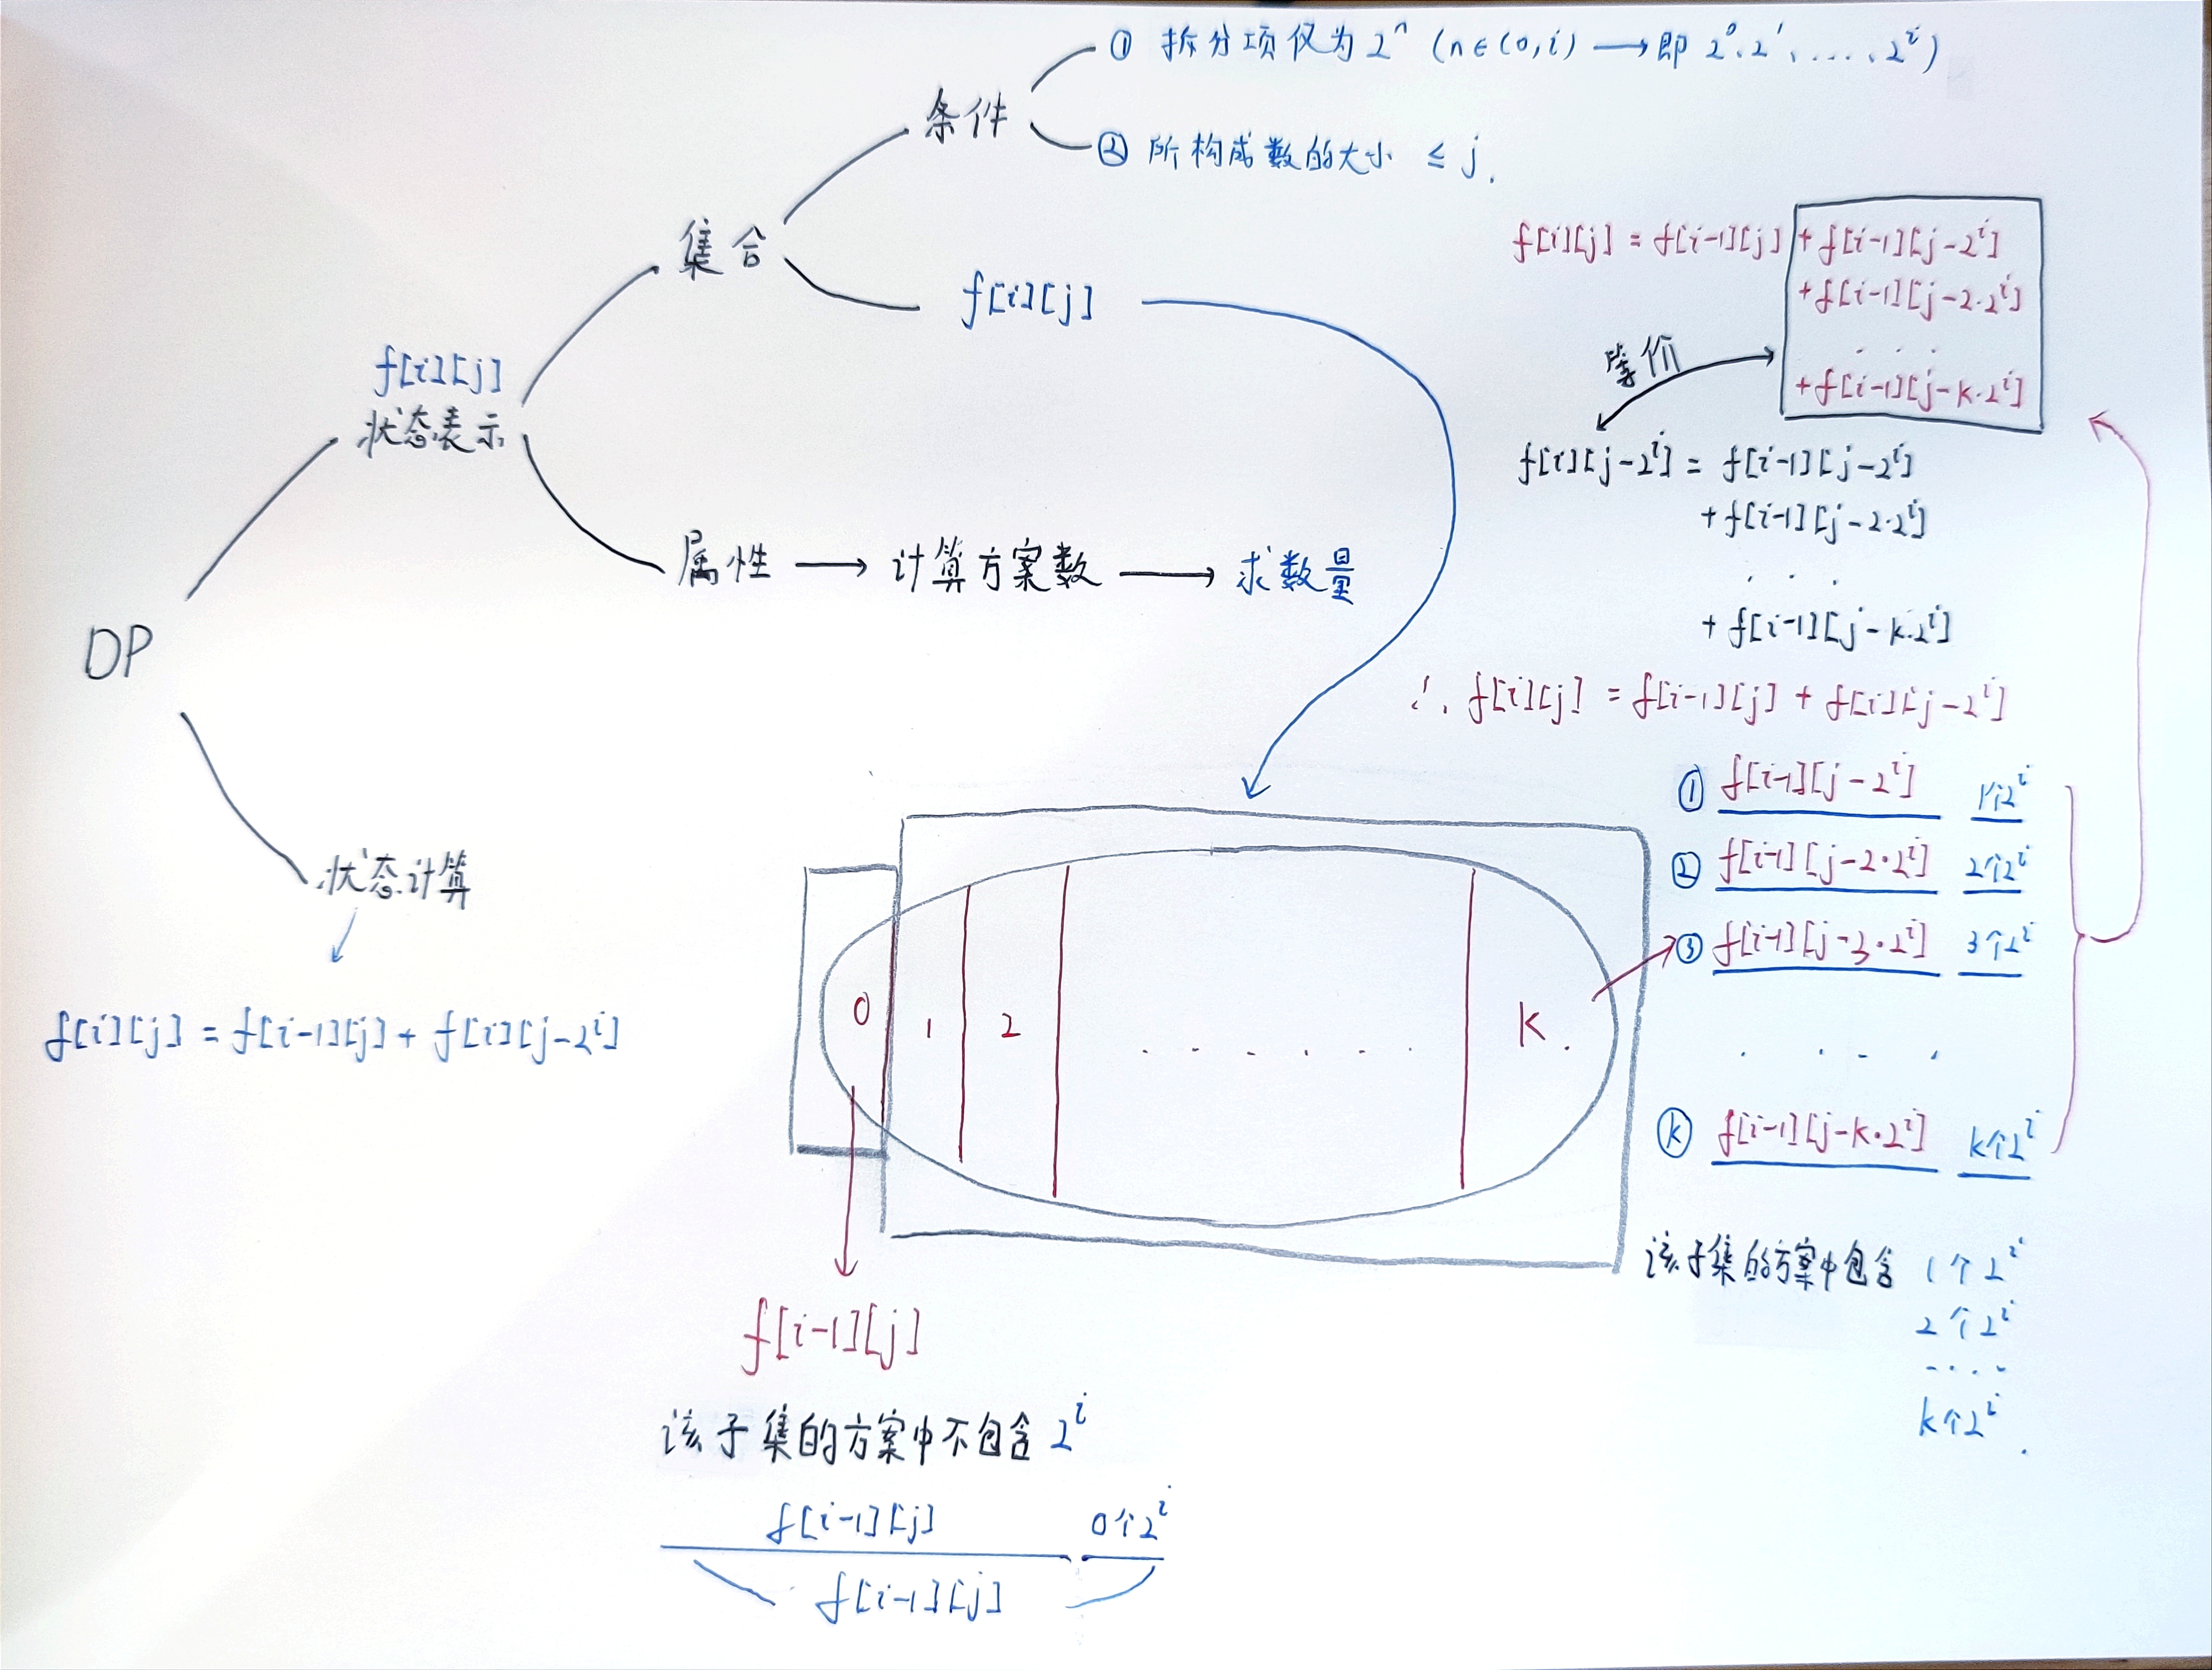 ① 拆分项仅为 2ⁿ (n∈(0,i) → 即 2⁰、2¹、....、2ⁱ)
条件
② 所构成数的大小 ≤ j.
集合
f[i][j]
f[i][j]
状态表示
属性 → 计算方案数 → 求数量
DP
状态计算
f[i][j] = f[i-1][j] + f[i][j-2ⁱ]
f[i][j] = f[i-1][j] + f[i-1][j-2ⁱ]
+ f[i-1][j-2·2ⁱ]
. . .
+ f[i-1][j-k·2ⁱ]
等价
f[i][j-2ⁱ] = f[i-1][j-2ⁱ]
+ f[i-1][j-2·2ⁱ]
. . .
+ f[i-1][j-k·2ⁱ]
∴ f[i][j] = f[i-1][j] + f[i][j-2ⁱ]
① f[i-1][j-2ⁱ] 1个2ⁱ
② f[i-1][j-2·2ⁱ] 2个2ⁱ
③ f[i-1][j-3·2ⁱ] 3个2ⁱ
. . . .
ⓚ f[i-1][j-k·2ⁱ] k个2ⁱ
0 1 2 ...... K.
该子集的方案中包含 1个2ⁱ
2个2ⁱ
....
k个2ⁱ.
f[i-1][j]
该子集的方案中不包含 2ⁱ
f[i-1][j] 0个2ⁱ
f[i-1][j]